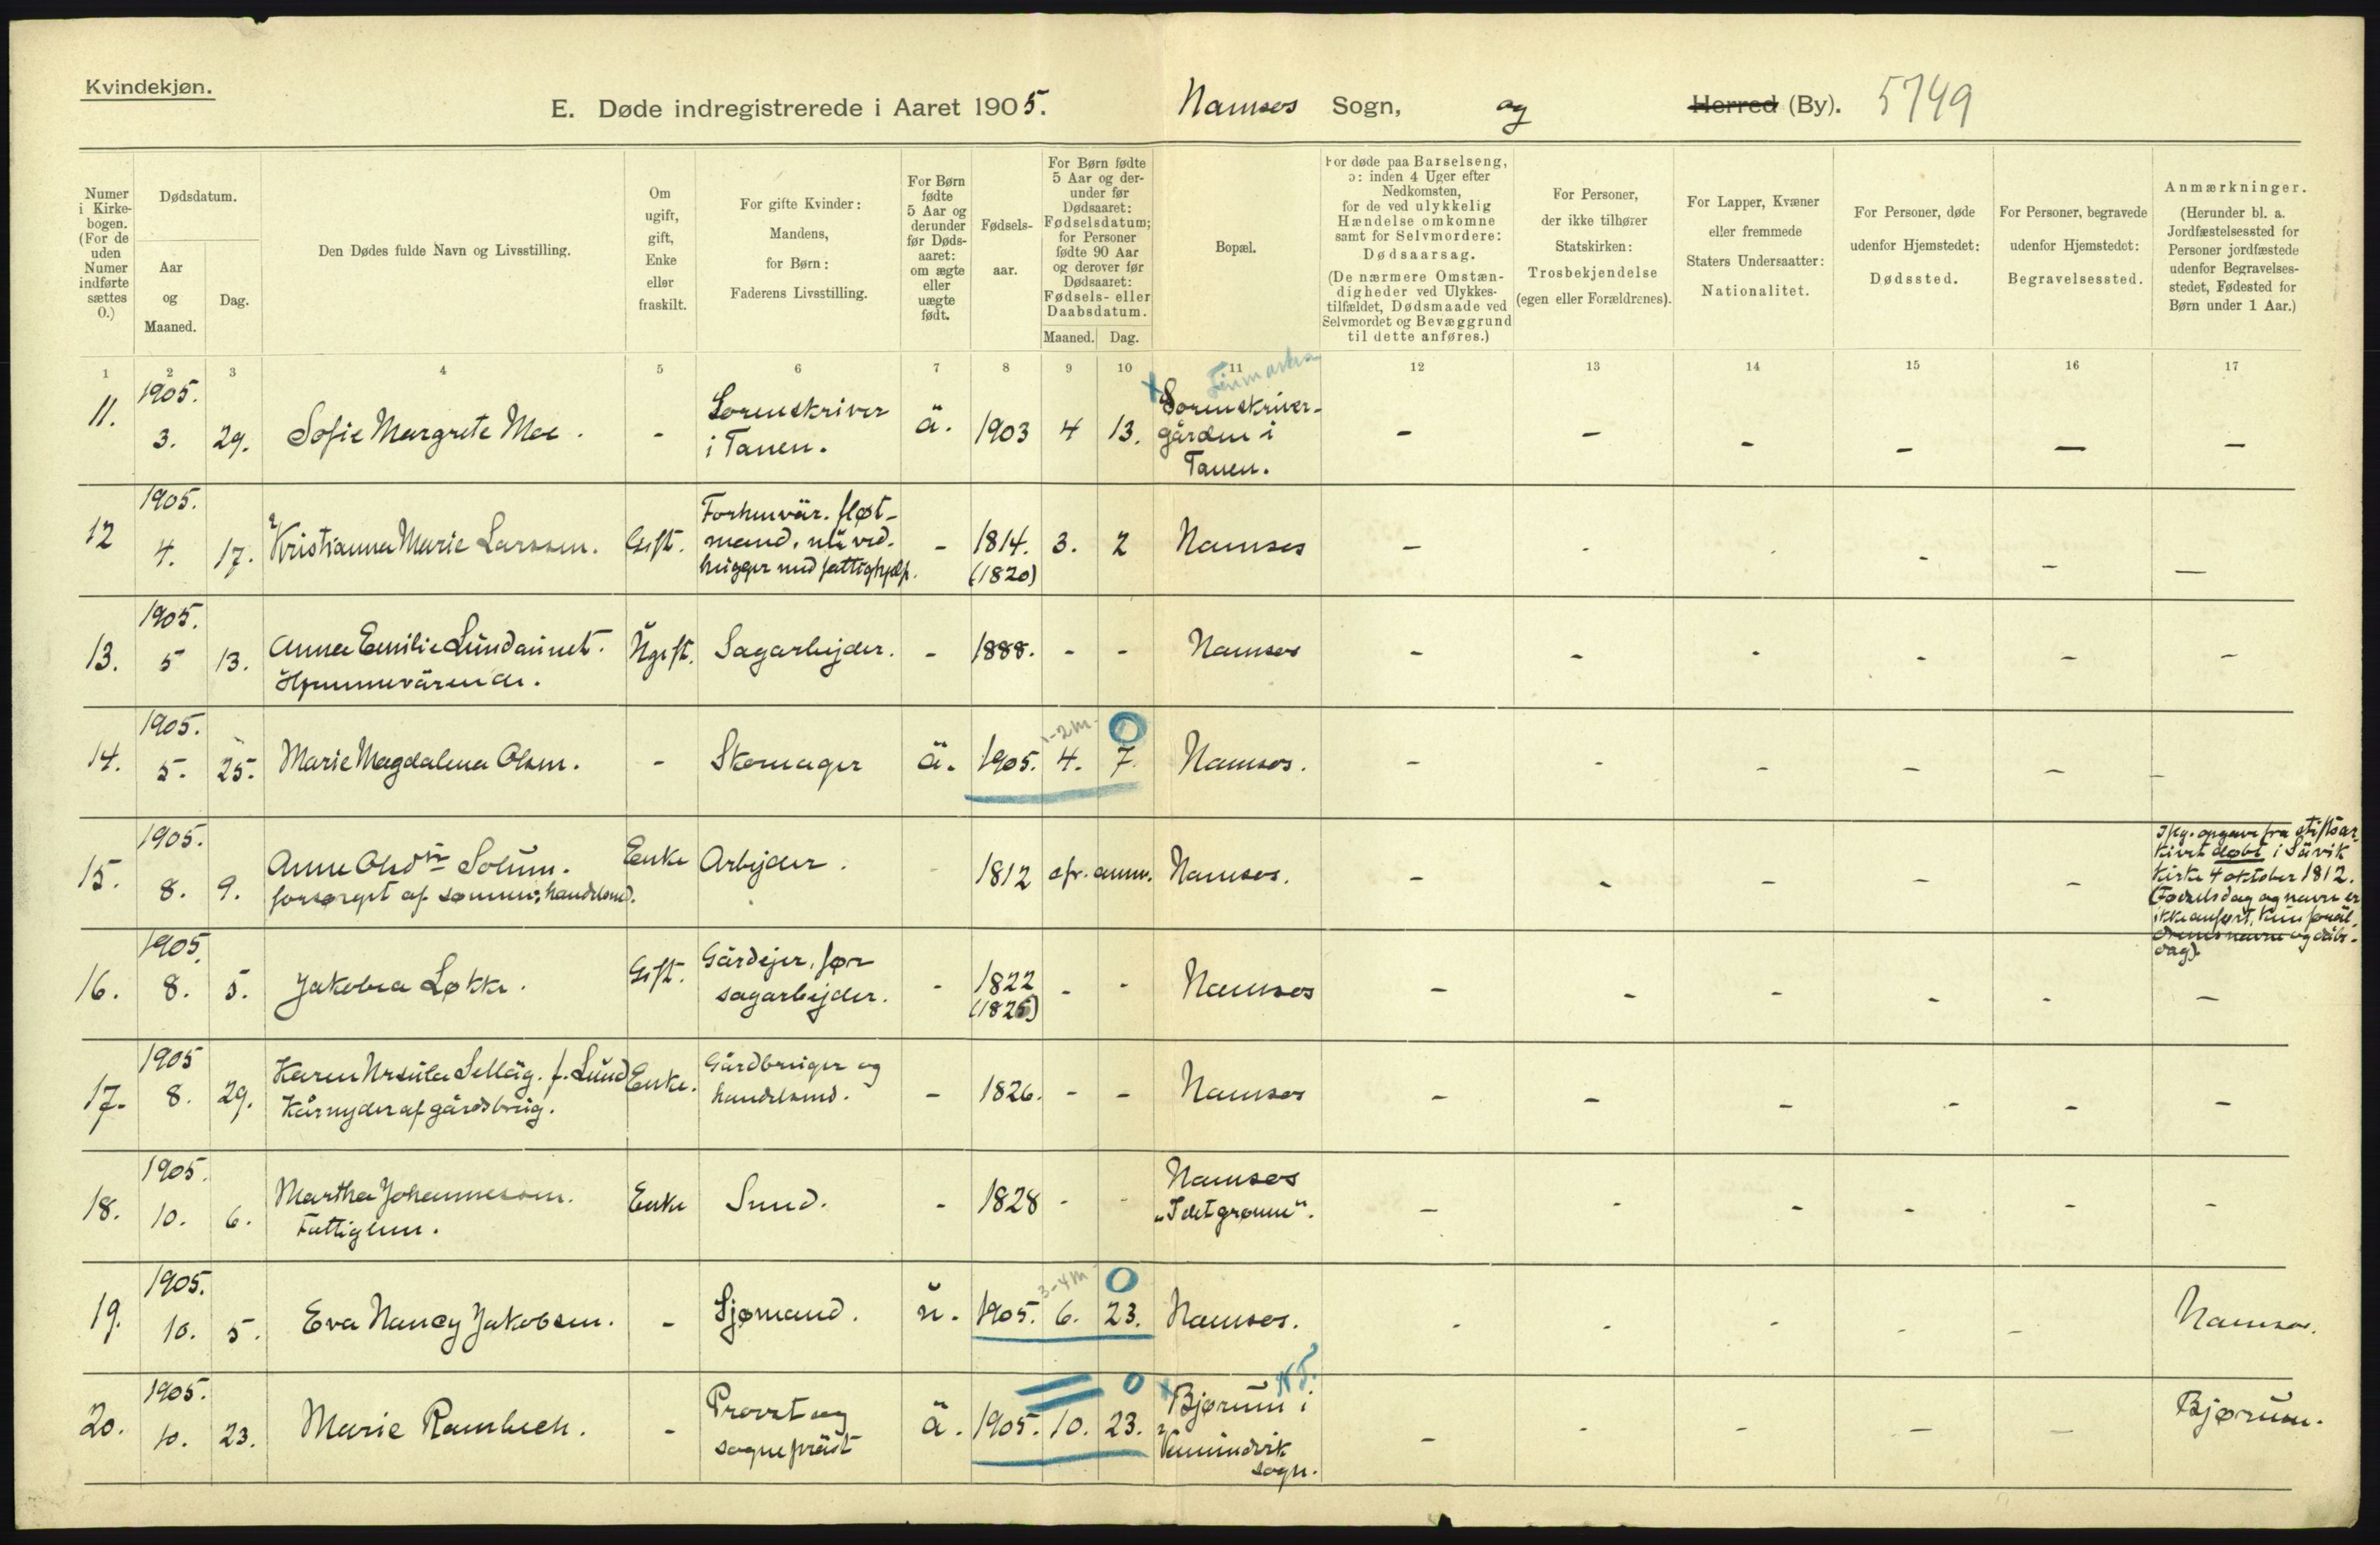 Kvindekjøn.
E. Døde indregistrerede i Aaret 1905. Namsos Sogn, og Herred (By). 5749
Numer i Kirkebogen. (For de uden Numer indførte sættes 0.)
Dødsdatum.
Aar og Maaned.
Dag.
Den Dødes fulde Navn og Livsstilling.
Om ugift, gift, Enke eller fraskilt.
For gifte Kvinder: Mandens, for Børn: Faderens Livsstilling.
For Børn fødte 5 Aar og derunder før Dødsaaret: om ægte eller uægte født.
Fødselsaar.
For Børn fødte 5 Aar og derunder før Dødsaaret: Fødselsdatum; for Personer fødte 90 Aar og derover før Dødsaaret: Fødsels- eller Daabsdatum.
Maaned. Dag.
Bopæl.
For døde paa Barselseng, ɔ: inden 4 Uger efter Nedkomsten, for de ved ulykkelig Hændelse omkomne samt for Selvmordere: Dødsaarsag. (De nærmere Omstændigheder ved Ulykkestilfældet, Dødsmaade ved Selvmordet og Bevæggrund til dette anføres.)
For Personer, der ikke tilhører Statskirken: Trosbekjendelse (egen eller Forældrenes).
For Lapper, Kvæner eller fremmede Staters Undersaatter: Nationalitet.
For Personer, døde udenfor Hjemstedet: Dødssted.
For Personer, begravede udenfor Hjemstedet: Begravelsessted.
Anmærkninger. (Herunder bl. a. Jordfæstelsessted for Personer jordfæstede udenfor Begravelsesstedet, Fødested for Børn under 1 Aar.)
1 2 3 4 5 6 7 8 9 10 11 12 13 14 15 16 17
Finmarken
11. 1905. 3. 29. Sofie Margrete Moe. - Sorenskriver i Tanen. ä. 1903 4 13. Sorenskrivergården i Tanen. - - - - - -
12 1905. 4. 17. Kristianna Marie Larssen. Gift. Forhenvär. fløtmand, nu vedhugger med fattighjelp. - 1814. (1820) 3. 2 Namsos - - - - - -
13. 1905. 5 13. Anna Emilie Lundaunet. Hjemmevärende. Ugift. Sagarbejder. - 1888. - - Namsos - - - - - -
14. 1905. 5. 25. Marie Magdalena Olsen. - Skomager ä. 1905. 4. 7. 1-2 m 0 Namsos. - - - - - -
15. 1905. 8. 9. Anne Olsdtr Solum. forsørget af sønnen; handelsmd. Enke Arbejder. 1812 sfr. anm. Namsos. - - - - - Ifkg. opgave fra stiftsarkivet døbt i Sävik kirke 4 oktober 1812. (Fødselsdag og navn er ikke anført, kun forældrenes navne og dåbsdag).
16. 1905. 8. 5. Jakobea Løkke. Gift. Gårdejer, før sagarbejder. - 1822 (1825) - - Namsos - - - - - -
17. 1905 8. 29. Karen Ursula Selläg. f. Lund Kårnyder af gårdsbrug. Enke. Gårdbruger og handelsmd. - 1826. - - Namsos - - - - - -
18. 1905. 10. 6. Martha Johannesen. Fattiglem. Enke Smed. - 1828 - - Namsos „I det grønne“. - - - - - -
19. 1905. 10. 5. Eva Nancy Jakobsen. - Sjømand. u. 1905. 6. 23. 3-4 m 0 Namsos. - - - - - Namsos.
20. 1905. 10. 23. Marie Rambech. - Provst og sogneprest ä. 1905. 10. 23. 0 Bjørum i Vemundvik sogn. N.T. - - - - - Bjørum.